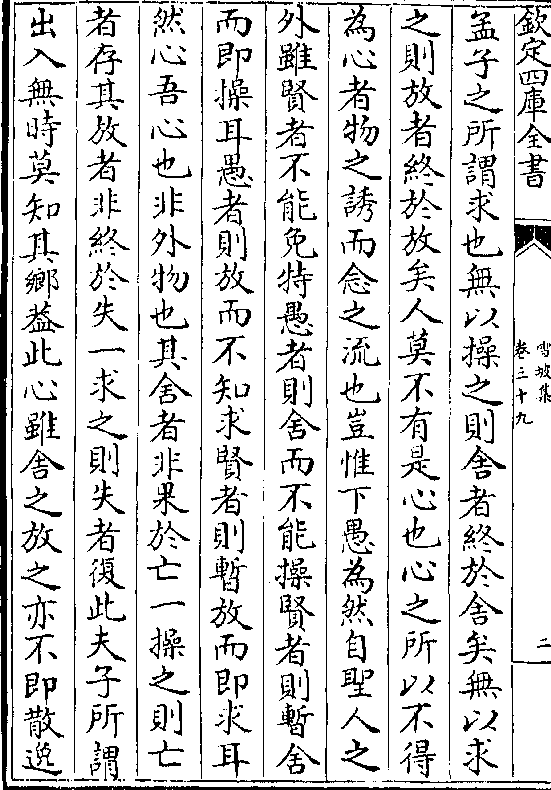 欽定四庫全書
雪坡集
卷三十九
二
孟子之所謂求也無以操之則舍者終於舍矣無以求
之則放者終於放矣人莫不有是心也心之所以不得
為心者物之誘而念之流也豈惟下愚為然自聖人之
外雖賢者不能免特愚者則舍而不能操賢者則暫舍
而即操耳愚者則放而不知求賢者則暫放而即求耳
然心吾心也非外物也其舍者非果於亡一操之則亡
者存其放者非終於失一求之則失者復此夫子所謂
出入無時莫知其鄉葢此心雖舍之放之亦不即散逸